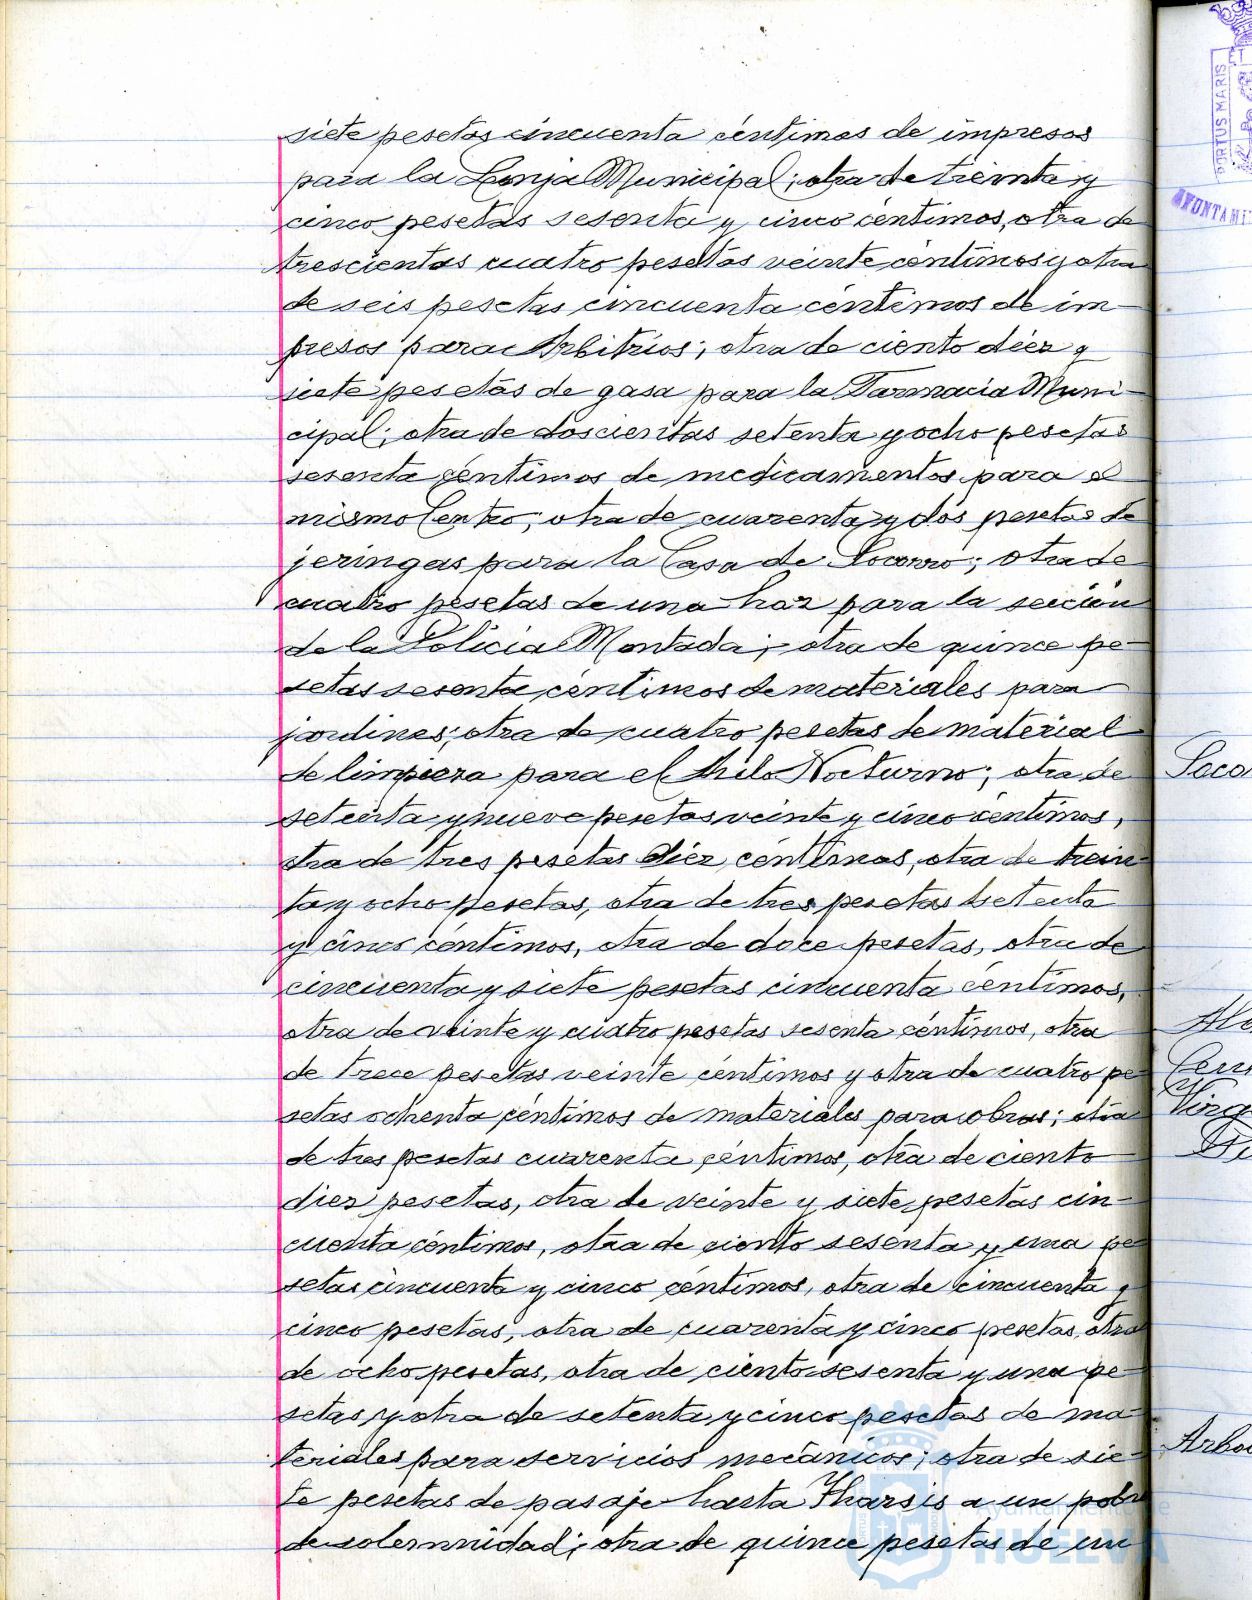 siete pesetas cincuenta céntimos de impresos
para la Lonja Municipal; otra de treinta y
cinco pesetas sesenta y cinco céntimos, otra de
trescientas cuatro pesetas veinte céntimos y otra
de seis pesetas cincuenta céntimos de im-
presos para Arbitrios; otra de ciento diez y
siete pesetas de gasa para la Farmacia Muni-
cipal; otra de doscientas setenta y ocho pesetas
sesenta céntimos de medicamentos para el
mismo Centro; otra de cuarenta y dos pesetas de
jeringas para la Casa de Socorro; otra de
cuatro pesetas de una hoz para la sección
de la Policia Montada; otra de quince pe-
setas sesenta céntimos de materiales para
jardines; otra de cuatro pesetas de material
de limpieza para el Asilo Nocturno; otra de
setenta y nueve pesetas veinte y cinco céntimos,
otra de tres pesetas diez céntimos, otra de trein-
ta y ocho pesetas, otra de tres pesetas setenta
y cinco céntimos, otra de doce pesetas, otra de
cincuenta y siete pesetas cincuenta céntimos,
otra de veinte y cuatro pesetas sesenta céntimos, otra
de trece pesetas veinte céntimos y otra de cuatro pe-
setas ochenta céntimos de materiales para obras; otra
de tres pesetas cuarenta céntimos, otra de ciento
diez pesetas, otra de veinte y siete pesetas cin-
cuenta céntimos, otra de ciento sesenta y una pe-
setas cincuenta y cinco céntimos, otra de cincuenta y
cinco pesetas, otra de cuarenta y cinco pesetas, otra
de ocho pesetas, otra de ciento sesenta y una pe-
setas y otra de setenta y cinco pesetas de ma-
teriales para servicios mecánicos; otra de sie-
te pesetas de pasaje hasta Tharsis a un pobre
de solemnidad; otra de quince pesetas de un
PORTUS MARIS ET
AYUNTAMI
Soco
Cem
Virg
Arbo
Ayuntamiento de
HUELVA